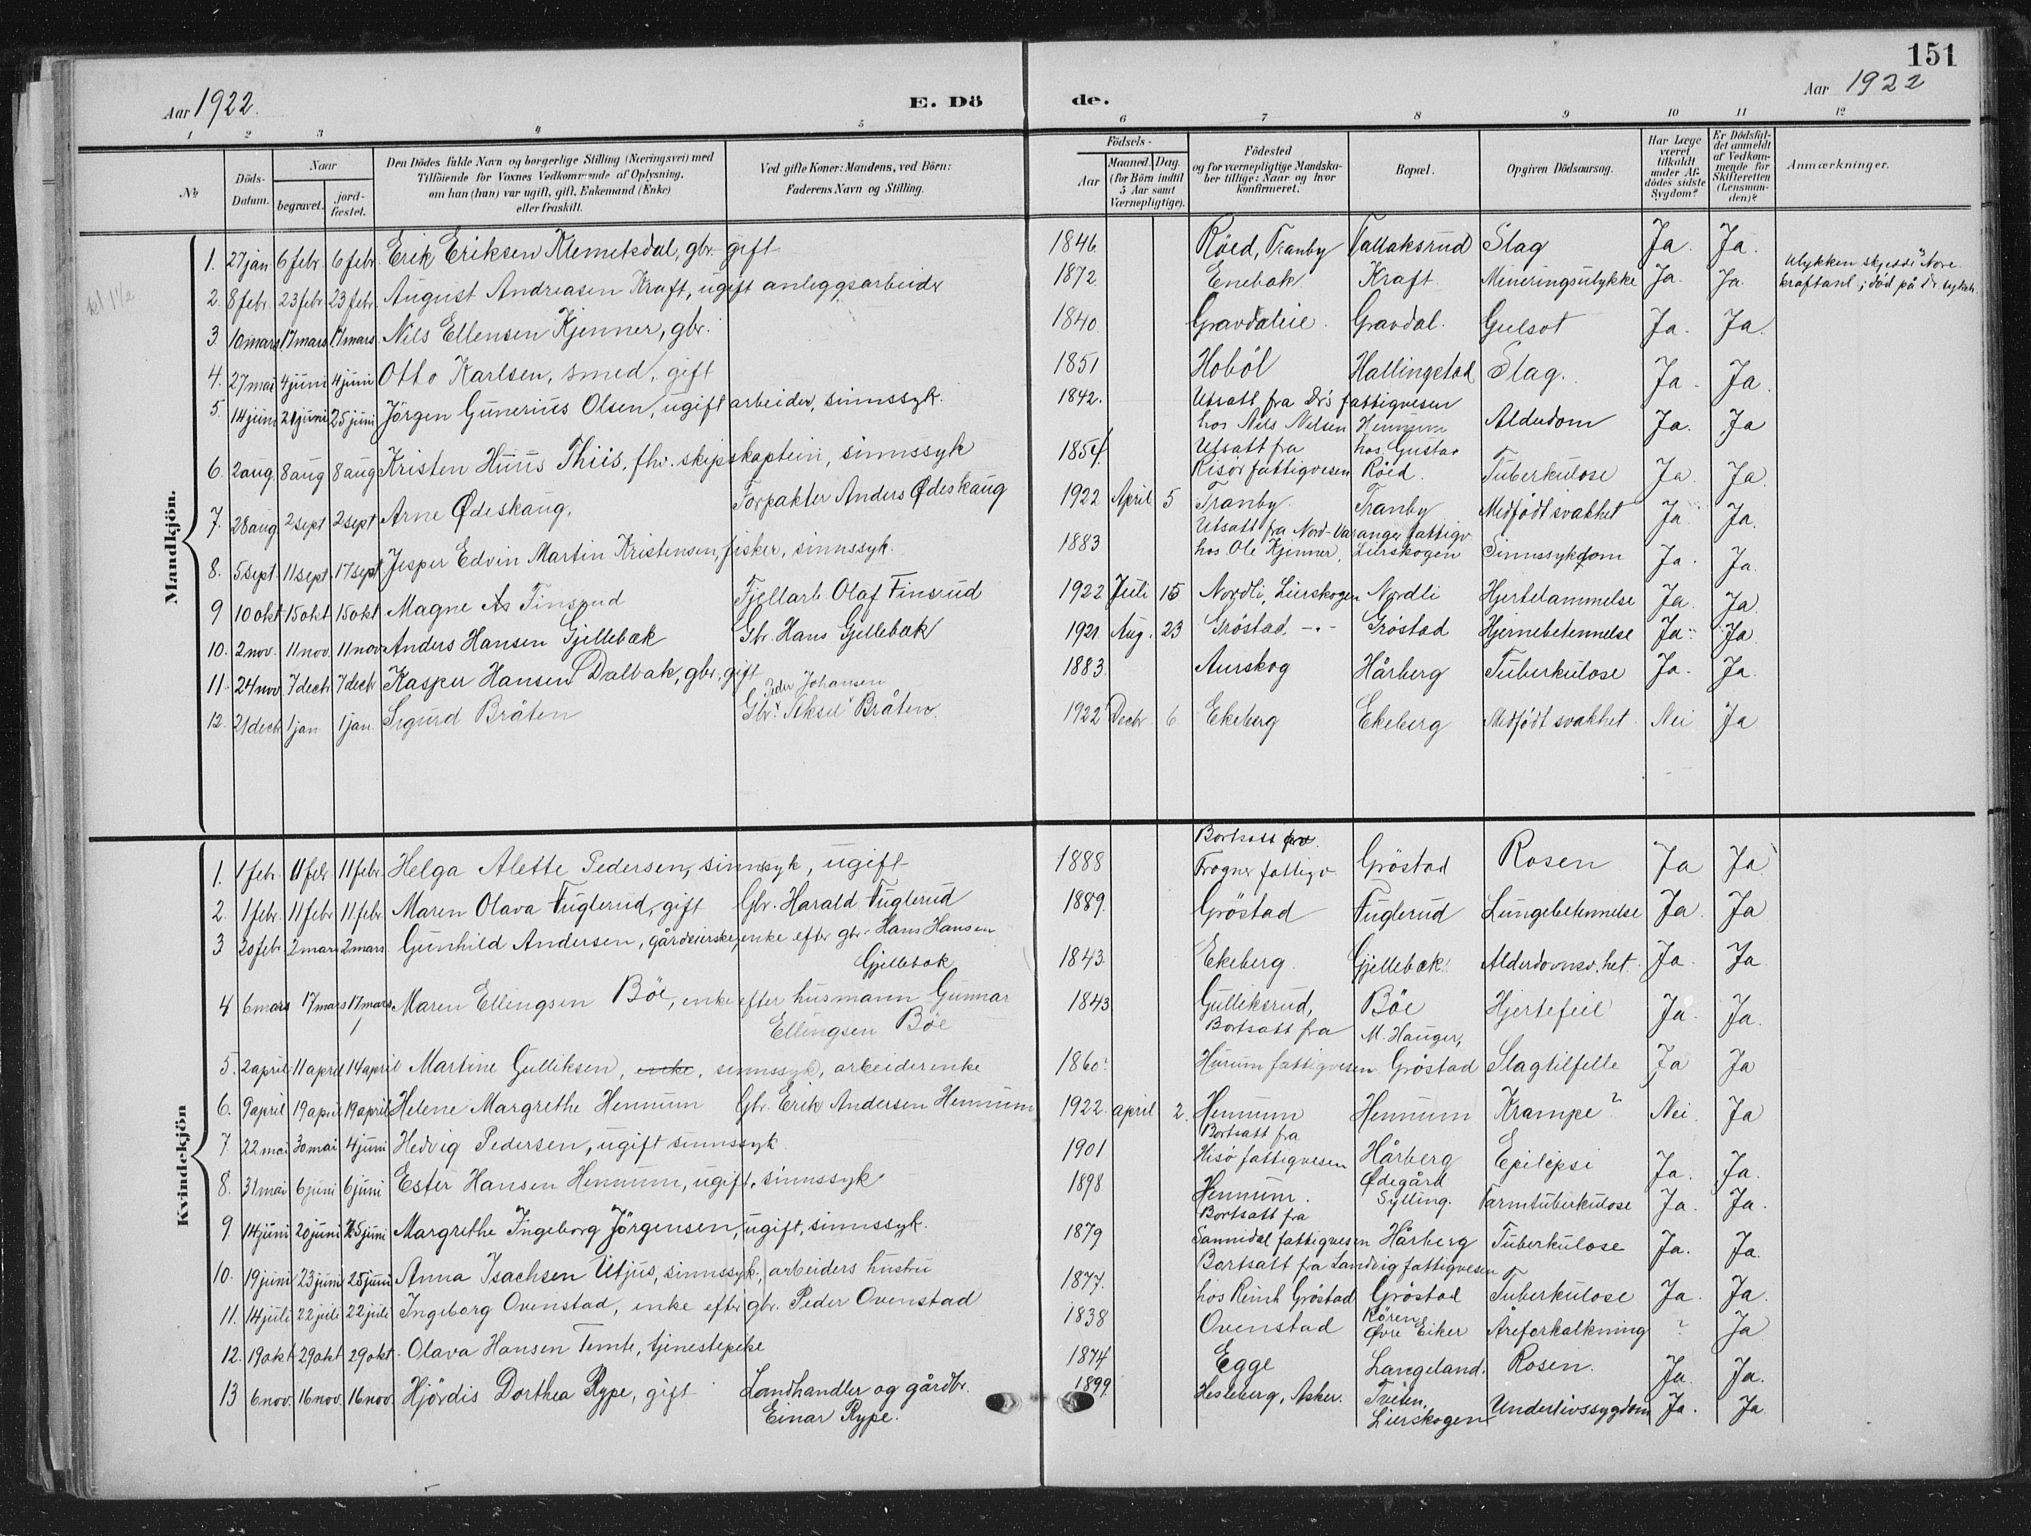 151
Aar 1922.
E. Dö
de.
Aar 1922
1 2 3 4 5 6 7 8 9 10 11 12
№
Döds-Datum.
Naar
begravet.
jord-fæstet.
Den Dödes fulde Navn og borgerlige Stilling (Næringsvei) med
Tilföiende for Voxnes Vedkommende af Oplysning,
om han (hun) var ugift, gift, Enkemand (Enke)
eller fraskilt.
Ved gifte Koner: Mandens, ved Börn:
Faderens Navn og Stilling.
Födsels-
Aar
Maaned. Dag.
(for Börn indtil
5 Aar samt
Værnepligtige).
Födested
og for værnepligtige Mandska-
ber tillige: Naar og hvor
konfirmeret.
Bopæl.
Opgiven Dödsaarsag.
Har Læge
været
tilkaldt
under Af-
dödes sidste
Sygdom?
Er Dödsfal-
det anmeldt
af Vedkom-
mende for
Skifteretten
(Lensman-
den)?
Anmærkninger.
Mandkjön.
1. 27 jan 6 febr. 6 febr. Erik Eriksen Klemetsdal, gbr. gift 1846 Röed, Tranby Tallaksrud Slag Ja. Ja.
2. 8 febr. 23 febr 23 febr. August Andreasen Kraft, ugift anleggsarbeider 1872 Enebak Kraft Mineringsulykke Ja. Ja. Ulykken skjedde i Nore kraftanl; död på Dr sykeh.
3 10 mars 17 mars 17 mars Nils Ellensen Kjenner, gbr. 1840. Gravdaleie. Gravdal. Gulsot Ja. Ja.
4. 27 mai 4 juni 4 juni Otto Karlsen, smed, gift 1851 Hoböl Hallingstad Slag. Ja. Ja.
5. 14 juni 21 juni 25 juni Jörgen Gunerius Olsen, ugift arbeider, sinnssyk. 1842. Utsatt fra Dr's fattigvesen
hos Nils Nilsen Hennum Alderdom Ja. Ja
6. 2 aug. 8 aug 8 aug Kristen Huus Thiis, fhv. skipskaptein, sinnssyk 1854. Utsatt fra hos Gustav
Risör fattigvesen Röed. Tuberkulose Ja. Ja.
7. 28 aug 2 sept 2 sept Arne Ødeskaug. Forpakter Anders Ødeskaug 1922 April 5 Tranby. Tranby Medfödt svakhet Ja Ja.
8. 5 sept. 11 sept. 17 sept Jesper Edvin Martin Kristensen, fisker, sinnssyk. 1883 Utsatt fra Nord-Varanger fattigv.
hos Ole Kjenner, Lierskogen Sinnssykdom Ja. Ja.
9 10 okt 15 okt 15 okt Magne As Finsrud Fjellarb. Olaf Finsrud 1922 Juli 15 Nordli, Lierskogen Nordli Hjertelammelse Ja. Ja.
10. 2 nov. 11 nov. 11 nov Anders Hansen Gjellebæk Gbr. Hans Gjellebæk 1921 Aug. 23 Gröstad -"- Gröstad Hjernebetennelse Ja Ja
11. 24 nov 7 decbr 7 decbr Kasper Hansen Dalbak, gbr., gift 1883. Aurskog Hårberg Tuberkulose Ja. Ja.
12. 21 decbr 1 jan 1 jan. Sigurd Bråten Peder Johansen
Gbr. Bråten 1922 Decbr. 6. Ekeberg Ekeberg Medfödt svakhet. Nei Ja
Kvindekjön
1. 1 febr. 11 febr 11 febr. Helga Alette Pedersen, sinnssyk, ugift 1888 Bortsatt fra
Frogner fattigv. Gröstad Rosen Ja Ja
2. 1 febr. 11 febr 11 febr. Maren Olava Fuglerud, gift Gbr. Harald Fuglerud 1889. Gröstad Fuglerud Lungebetennelse Ja. Ja
3 20 febr 2 mars 2 mars. Gunhild Andersen, gårdeierske, enke efter gbr. Hans Hansen
Gjellebæk 1843. Ekeberg. Gjellebæk. Alderdomssv.het. Ja. Ja
4 6 mars 17 mars 17 mars Maren Ellingsen Böe, enke efter husmann Gunnar
Ellingsen Böe 1843 Gulliksrud, Böe Hjertefeil Ja. Ja.
5. 2 april 11 april 14 april Martine Gulliksen, enke, sinnssyk, arbeiderenke 1860. Bortsatt fra M. Hauger,
Hurum fattigvesen Gröstad Slagtilfelle Ja Ja
6. 9 april 19 april 19 april Helene Margrethe Hennum Gbr. Erik Andersen Hennum 1922. april 2. Hennum Hennum Krampe? Nei. Ja
7 22 mai 30 mai 4 juni Hedvig Pedersen, ugift sinnssyk. 1901 Bortsatt fra
Hisö fattigvesen Hårberg Epilepsi Ja. Ja.
8. 31 mai 6 juni 6 juni Ester Hansen Hennum, ugift, sinnssyk 1898. Hennum. Ødegård
Sylling. Tarmtuberkulose Ja. Ja.
9 14 juni 20 juni 25 juni Margrethe Ingeborg Jörgensen, ugift, sinnssyk. 1879 Bortsatt fra
Sannidal fattigvesen Hårberg Tuberkulose Ja. Ja.
10. 19 juni 23 juni 25 juni Anna Isachsen Utjus, sinnssyk, arbeiders hustru 1877. Bortsatt fra Landvig fattigvesen
hos Reinh Gröstad Gröstad Tuberkulose Ja. Ja.
11. 14 juli 22 juli 22 juli Ingeborg Ovenstad, enke efter gbr. Peder Ovenstad 1838 Ovenstad Kören
Øvre Eiker Åreforkalkning ? Ja
12. 19 okt 29 okt 29 okt. Olava Hansen Temte, tjenestepike 1874 Egge Langeland. Rosen. Ja. Ja.
13 6 nov. 16 nov. 16 nov. Hjördis Dorthea Rype, gift Landhandler og gårdbr.
Einar Rype. 1899 Hesleberg, Asker. Tveten,
Lierskogen Underlivssygdom Ja. Ja